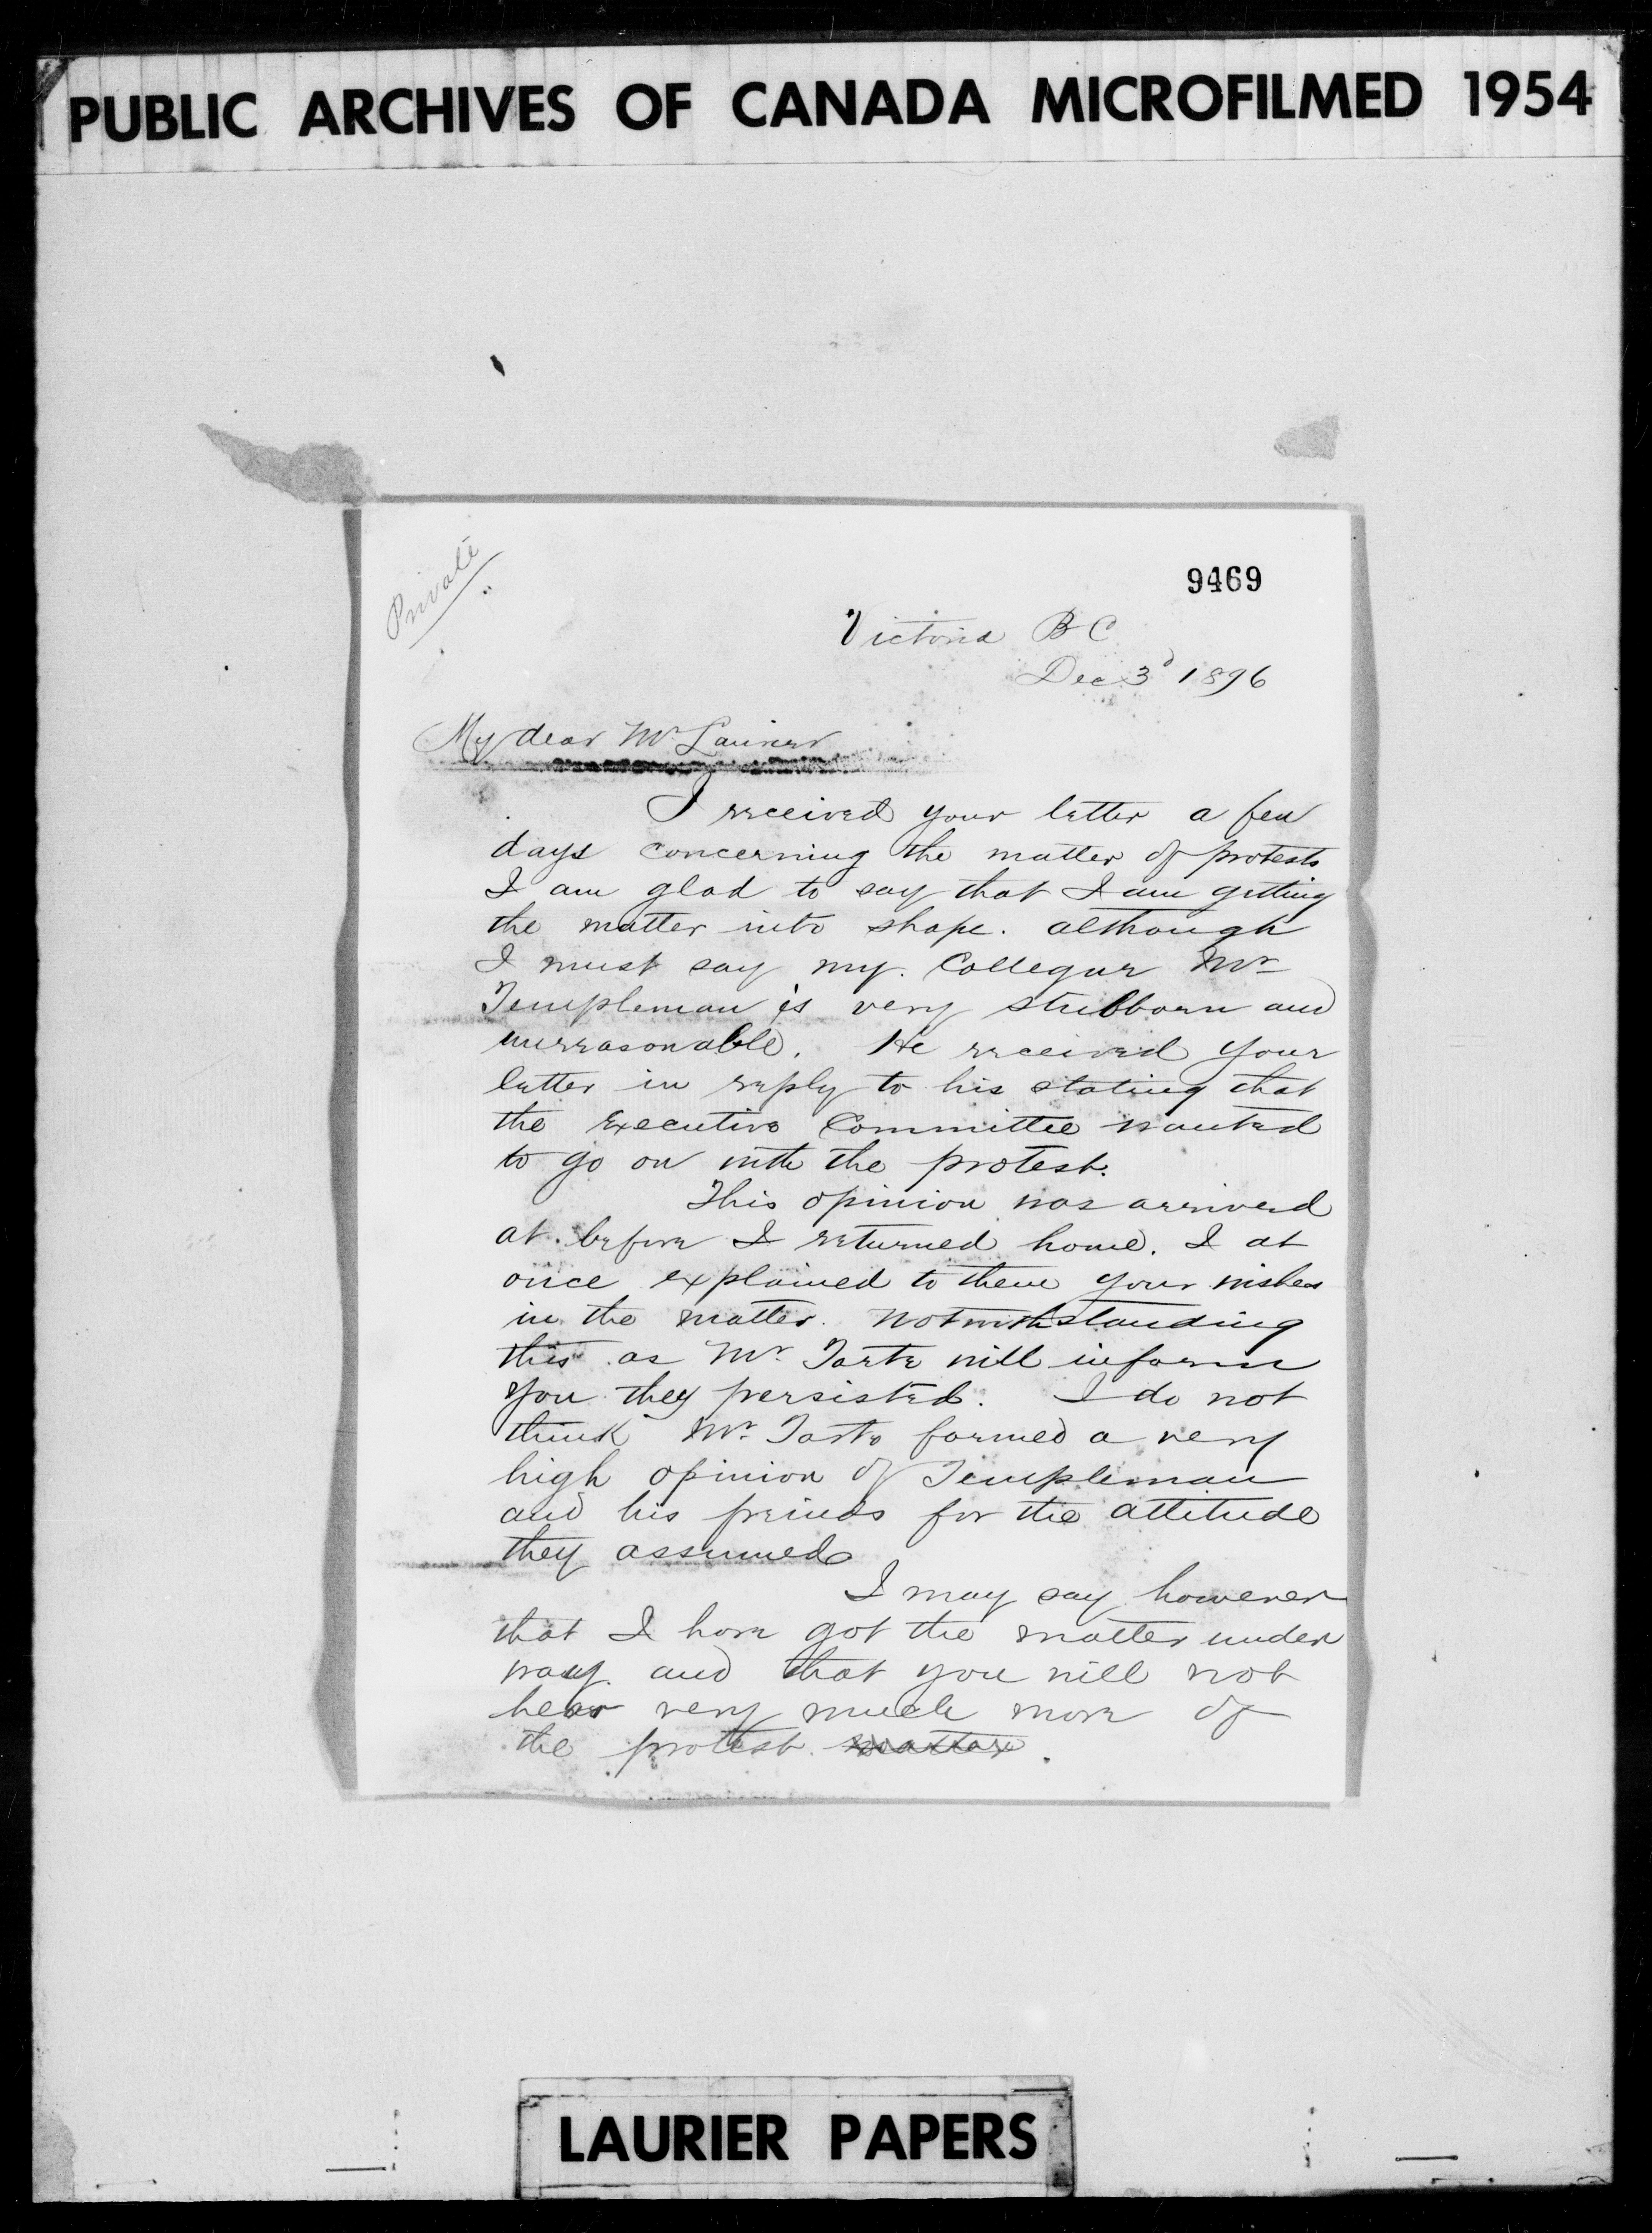 PUBLIC ARCHIVES OF CANADA MICROFILMED 1954
Private
9469
Victoria B C
Dec 3d 1896
My dear Mr Laurier
I received your letter a few
days concerning the matter of protests
I am glad to say that I am getting
the matter into shape. although
I must say my. Collegue Mr
Templeman is very stubborn and
unreasonable. He received your
letter in reply to his stating that
the Executive Committee wanted
to go on with the protest.
This opinion was arrived
at before I returned home. I at
once explained to them your wishes
in the matter. Notwithstanding
this as Mr. Tarte will inform
you they persisted. I do not
think Mr. Tarte formed a very
high opinion of Templeman
and his freinds for the attitude
they assumed
I may say however
that I have got the matter under
way. and that you will not
hear very much more of
the protest. matter.
LAURIER PAPERS